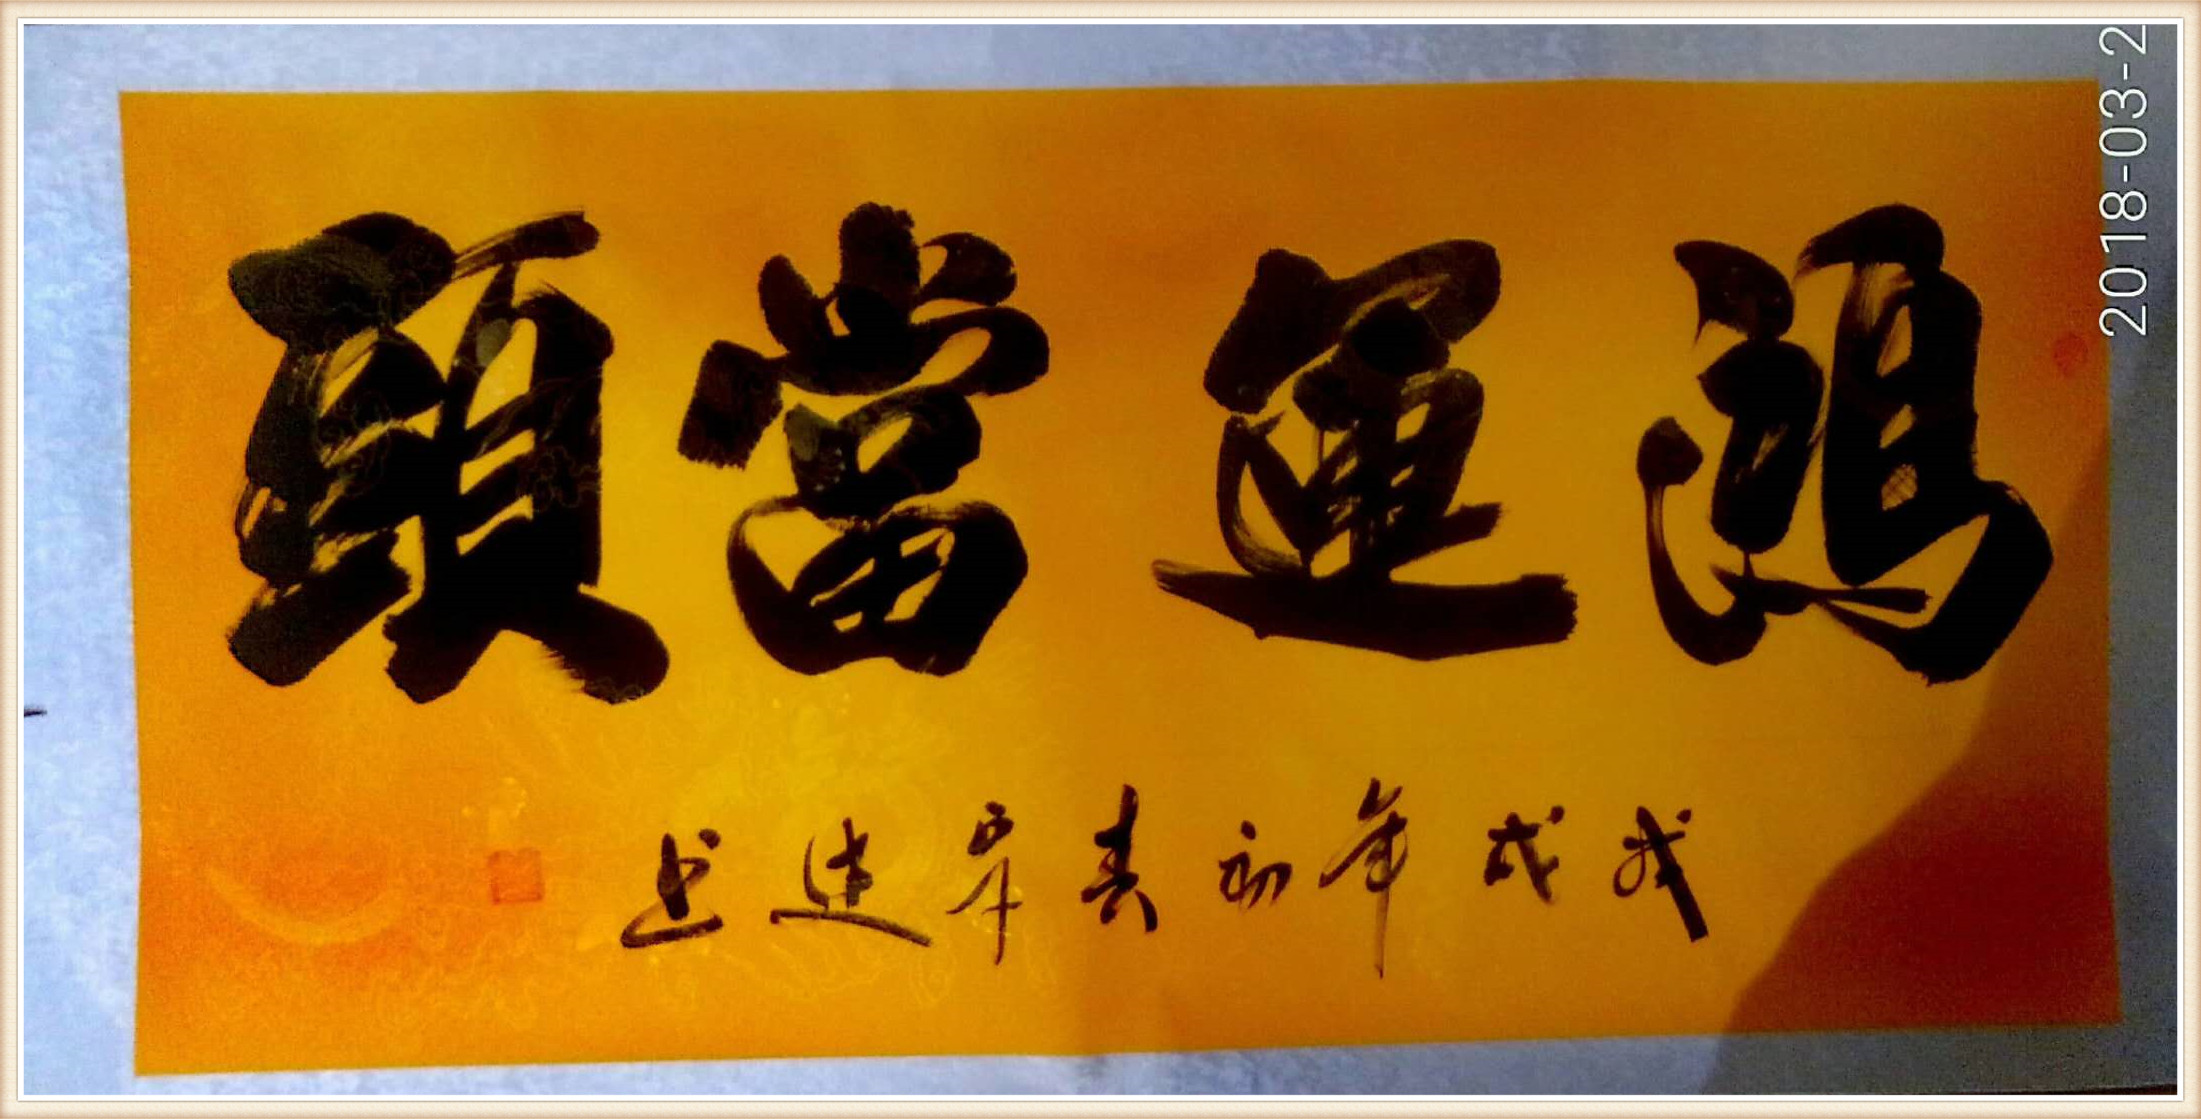 鴻運當頭
戊戌年初春軍建书
2018-03-2